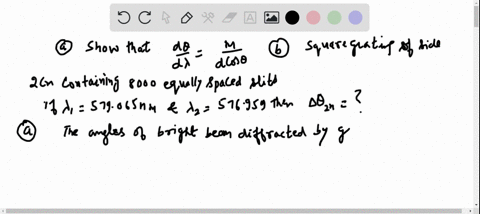 (a) Show that dθ/dλ = M/dcosθ (b) Square grating of side
2cm containing 8000 equally spaced slits
If λ₁ = 579.065nm & λ₂ = 576.959 then Δθ₂ₙ = ?
(a) The angles of bright beam diffracted by g